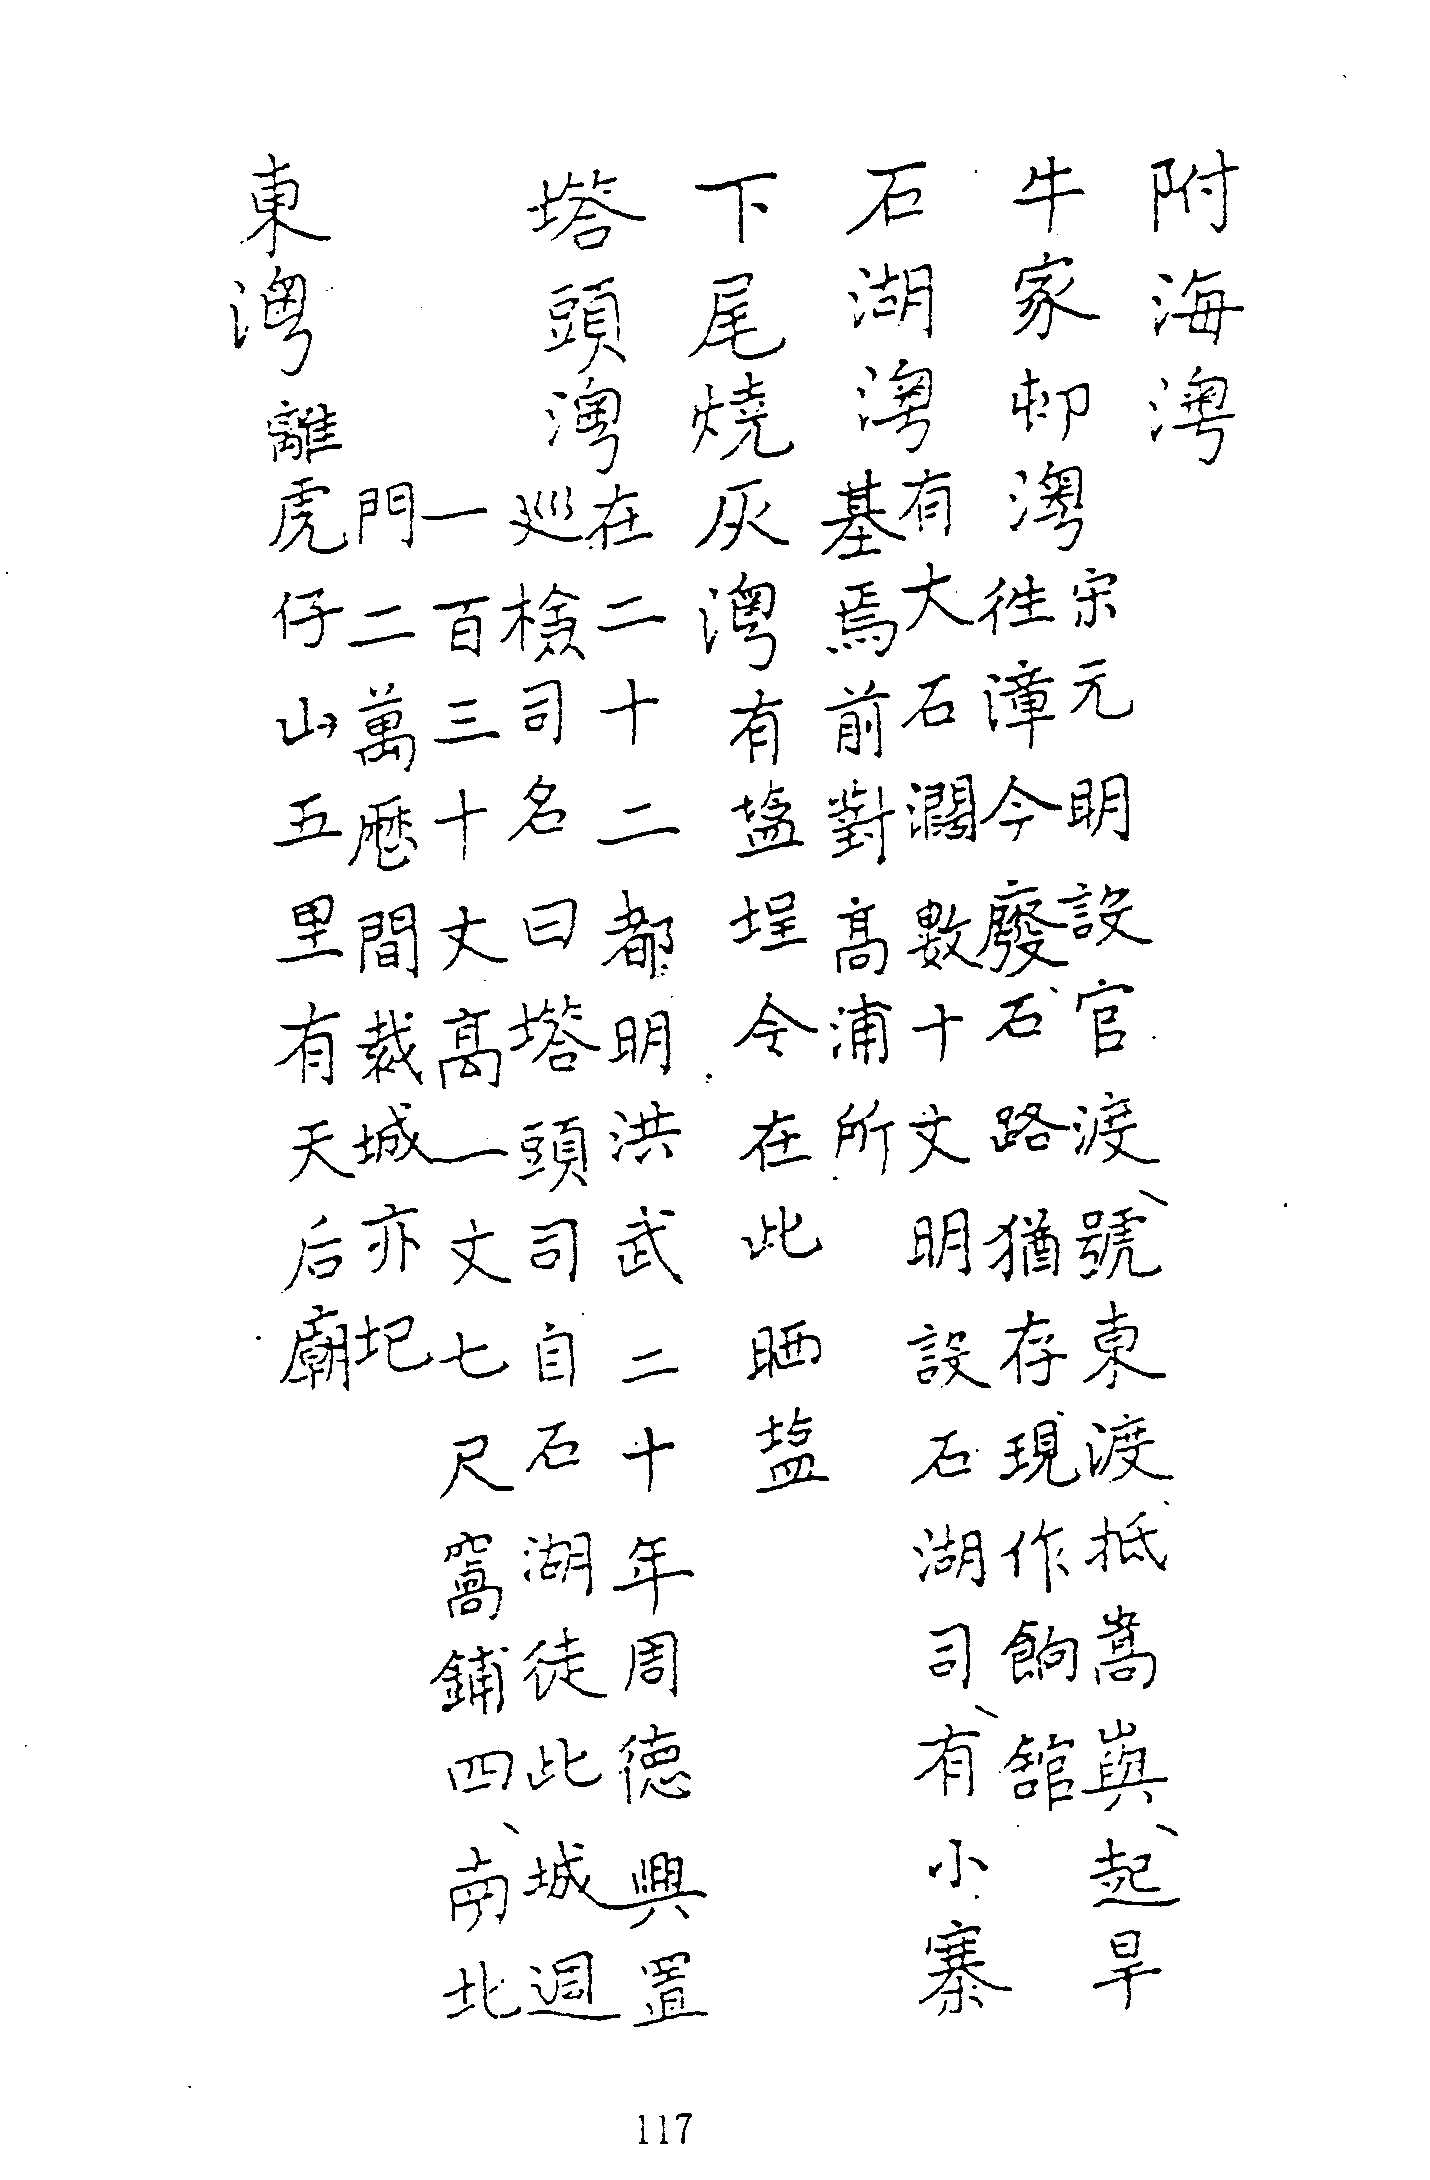 附海澳
牛家村澳宋元明設官渡、號東渡抵嵩嶼、起旱
徃漳今廢石路猶存現作餉舘
石湖澳有大石濶數十丈明設石湖司、有小寨
基焉前對高浦所
下尾燒灰澳有塩埕今在此晒塩
塔頭澳在二十二都明洪武二十年周德興置
巡檢司名曰塔頭司自石湖徒此城週
一百三十丈高一丈七尺窩鋪四、南北
門二萬歷間裁城亦圮
東澳離虎仔山五里有天后廟
117